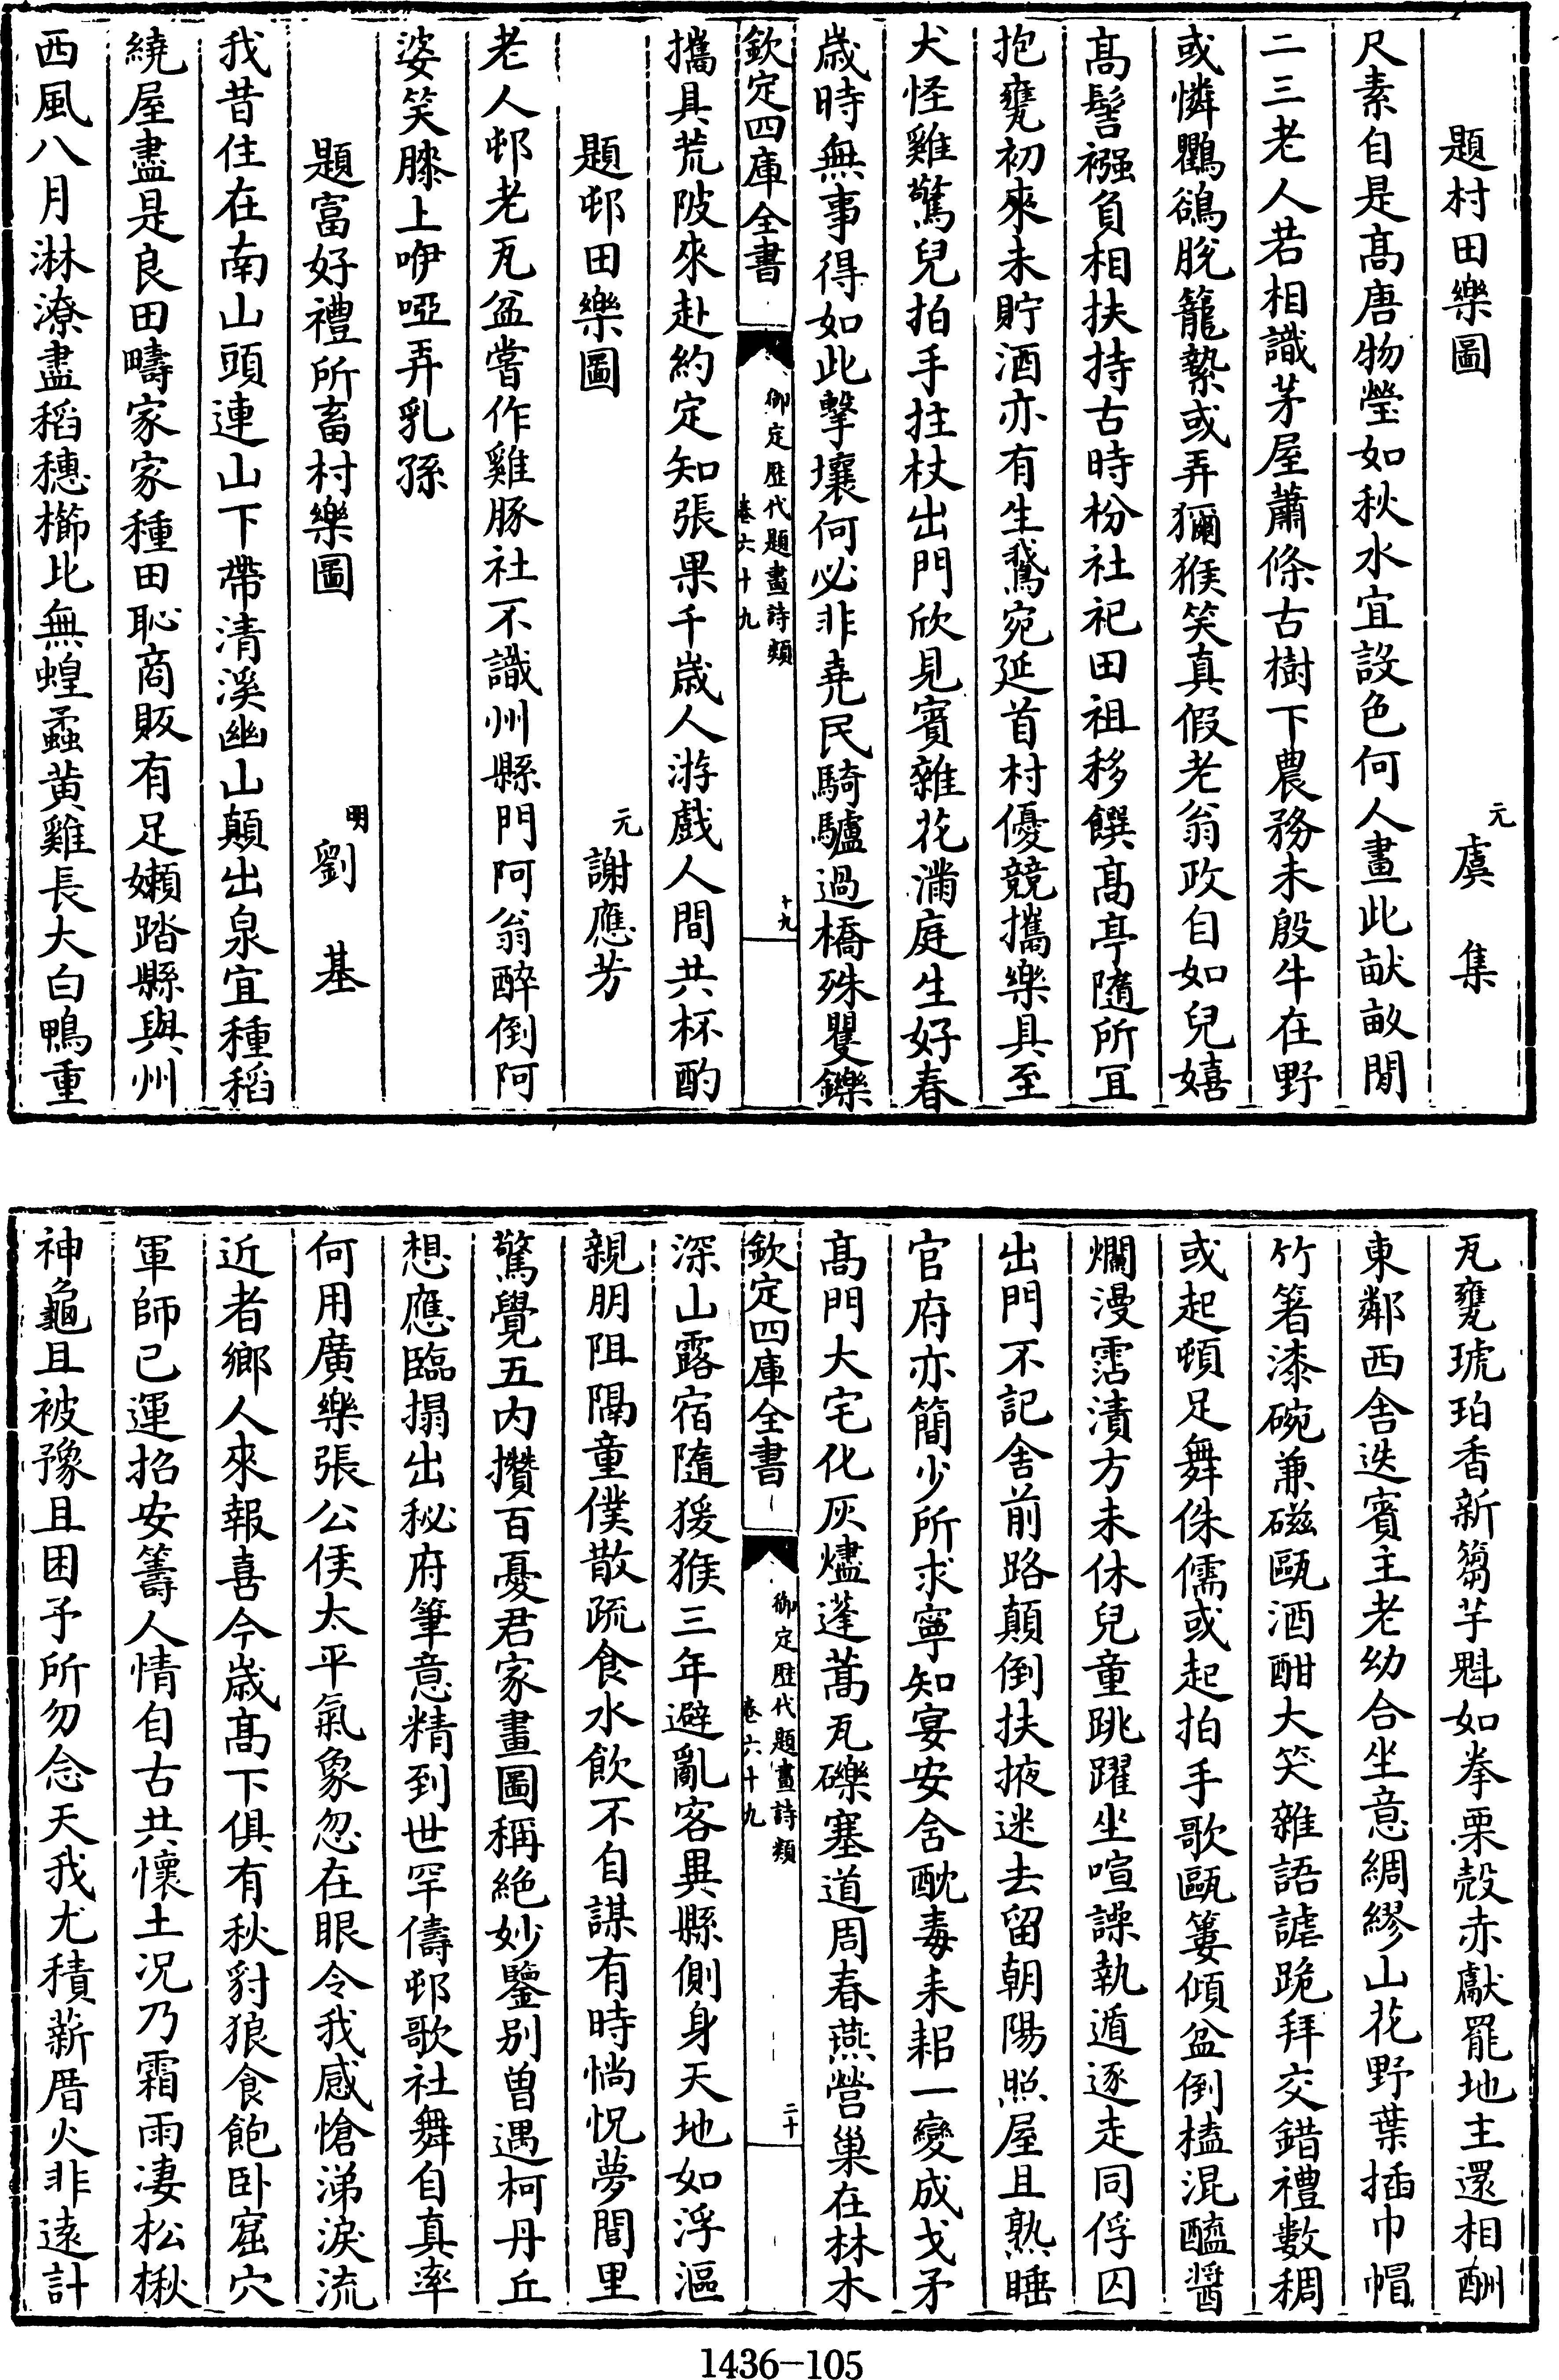 題村田樂圖
元虞集
尺素自是髙唐物瑩如秋水宜設色何人畫此畎畝閒
二三老人若相識茅屋蕭條古樹下農務未殷牛在野
或憐鸜鵒脫籠縶或弄獮猴笑真假老翁政自如兒嬉
髙髻襁負相扶持古時枌社祀田祖移饌髙亭隨所宜
抱甕初來未貯酒亦有生鵞宛延首村優競攜樂具至
犬怪雞驚兒拍手拄杖出門欣見賓雜花滿庭生好春
歲時無事得如此擊壤何必非堯民騎驢過橋殊矍鑠
欽定四庫全書
御定歴代題畫詩類
卷六十九
十九
攜具荒陂來赴約定知張果千歲人游戲人間共杯酌
題邨田樂圖
元謝應芳
老人邨老瓦盆嘗作雞豚社不識州縣門阿翁醉倒阿
婆笑膝上咿啞弄乳孫
題富好禮所畜村樂圖
明劉基
我昔住在南山頭連山下帶清溪幽山顛出泉宜種稻
繞屋盡是良田疇家家種田恥商販有足嬾踏縣與州
西風八月淋潦盡稻穗櫛比無蝗蟊黄雞長大白鴨重
瓦甕琥珀香新篘芋魁如拳栗殻赤獻罷地主還相酬
東鄰西舍迭賓主老幼合坐意綢繆山花野葉插巾帽
竹箸漆碗兼磁甌酒酣大笑雜語謔跪拜交錯禮數稠
或起頓足舞侏儒或起拍手歌甌窶傾盆倒榼混醯醬
爛漫霑漬方未休兒童跳躍坐喧譟執遁逐走同俘囚
出門不記舍前路顛倒扶掖迷去留朝陽照屋且熟睡
官府亦簡少所求寧知宴安含酖毒耒耜一變成戈矛
髙門大宅化灰燼蓬蒿瓦礫塞道周春燕營巢在林木
欽定四庫全書
御定歴代題畫詩類
卷六十九
二十
深山露宿隨猨猴三年避亂客異縣側身天地如浮漚
親朋阻隔童僕散疏食水飲不自謀有時惝怳夢閭里
驚覺五内攢百憂君家畫圖稱絶妙鑒别曽遇柯丹丘
想應臨搨出秘府筆意精到世罕儔邨歌社舞自真率
何用廣樂張公侯太平氣象忽在眼令我感愴涕淚流
近者鄉人來報喜今歲髙下俱有秋豺狼食飽卧窟穴
軍師已運招安籌人情自古共懷土况乃霜雨凄松楸
神龜且被豫且困予所勿念天我尤積薪厝火非遠計
1436-105